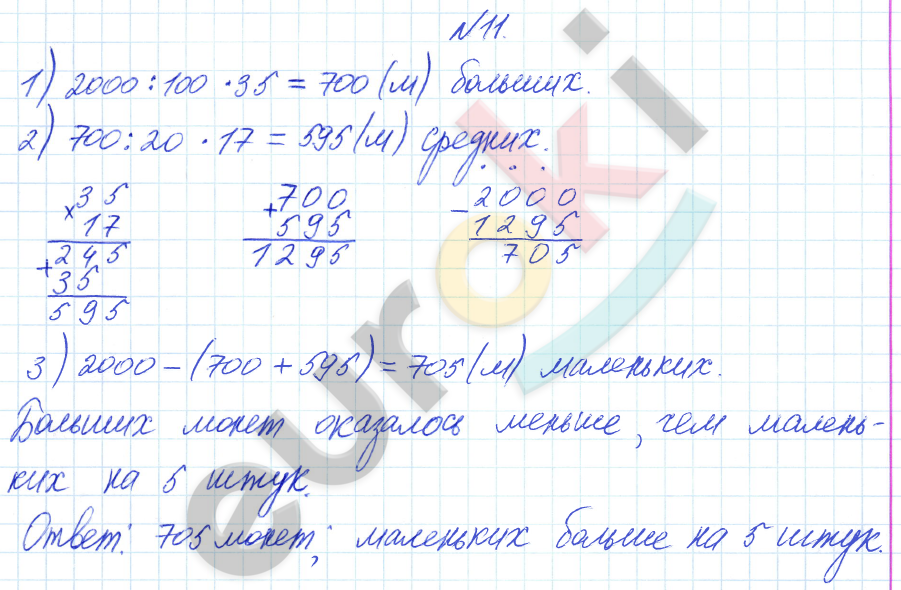 №11.
1) 2000:100·35=700(м) больших.
2) 700:20·17=595(м) средних.
×35
17
+245
35
595
+700
595
1295
-2000
1295
705
3) 2000-(700+595)=705(м) маленьких.
Больших монет оказалось меньше, чем малень-
ких на 5 штук.
Ответ: 705 монет; маленьких больше на 5 штук.
euroki